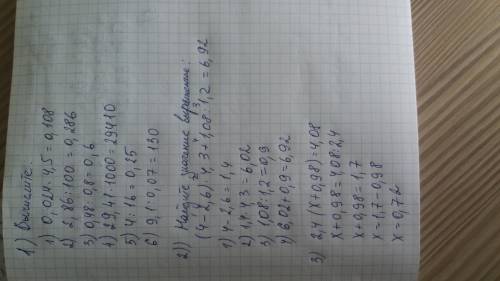 1) Вычислите:
1) 0,024·4,5=0,108
2) 2,86:100=0,286
3) 0,48:0,8=0,6
4) 29,41·1000=29410
5) 4:16=0,25
6) 9,1:0,07=130
2) Найдите значение выражение:
(4-2,6)·4,3+1,08:1,2=6,92
1) 4-2,6=1,4
2) 1,4·4,3=6,02
3) 1,08:1,2=0,9
4) 6,02+0,9=6,92
3) 2,4(x+0,98)=4,08
x+0,98=4,08:2,4
x+0,98=1,7
x=1,7-0,98
x=0,72